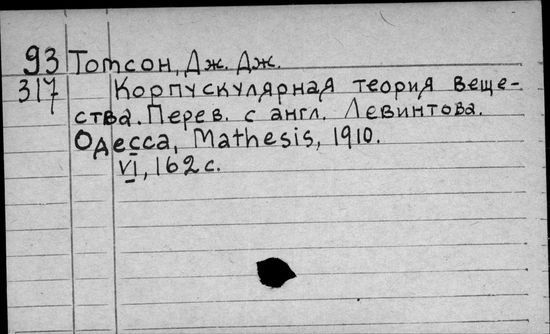 93 Томсон, Дж. Дж.
317 Корпускулярная теория веще-
ства. Перев. с англ. Левинтова.
Одесса, Mathesis, 1910.
VI, 162 с.